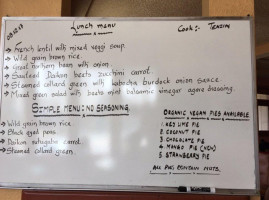 Lunch menu
Cook:- TENZIN
→ French lentil with mixed veggi soup.
→ Wild grain brown rice.
→ Great northern bean with onion.
→ Sauteed Daikon beets zucchini carrot.
→ Steamed collard green with kabocha burdock onion sauce
→ Mixed green salad with beets mint balsamic vinegar agave dressing.
SIMPLE MENU: NO SEASONING.
→ Wild grain brown rice.
→ Black eyed peas.
→ Daikon rutugabe carrot.
→ Steamed collard green.
ORGANIC VEGAN PIES AVAILABLE
1. KEY LIME PIE
2. COCONUT PIE
3. CHOCOLATE PIE
4. MANGO PIE
5. STRAWBERRY PIE
ALL PIES CONTAIN NUTS.